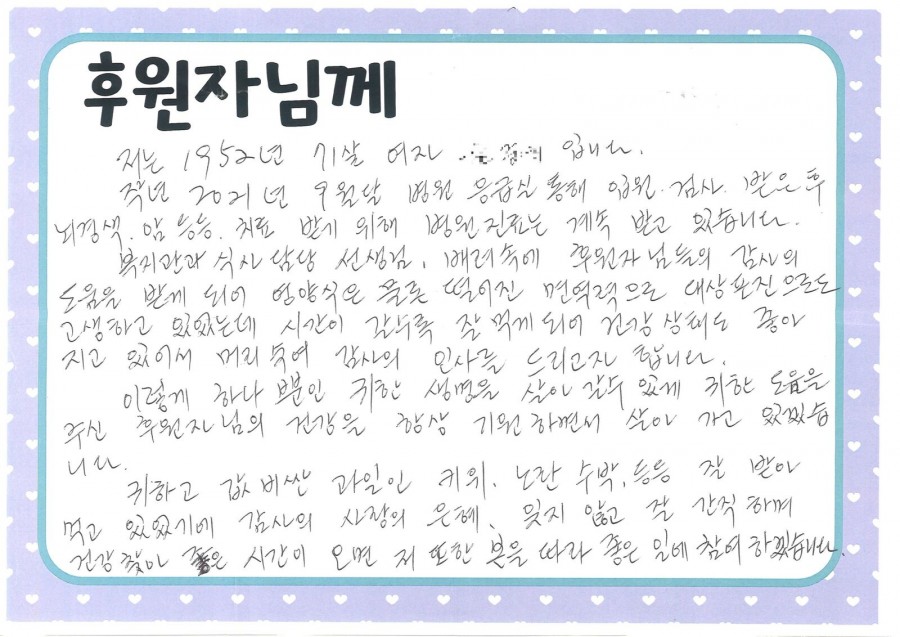 후원자님께
저는 1952년 71살 여자 입니다.
작년 2021년 9월달 병원 응급실 통해 입원.검사.받은 후
뇌경색.암 등등.치료 받기 위해 병원진료는 계속 받고 있습니다.
복지관과 식사담당 선생님, 배려속에 후원자님들의 감사의
도움을 받게 되어 영양식은 물론 떨어진 면역력으로 대상포진으로도
고생하고 있었는데 시간이 갈수록 잘먹게되어 건강상태도 좋아
지고 있어서 머리숙여 감사의 인사를 드리고자 합니다.
이렇게 하나 뿐인 귀한 생명을 살아갈수 있게 귀한 도움을
주신 후원자님의 건강을 항상 기원하면서 살아 가고 있겠습
니다.
귀하고 값비싼 과일인 키위, 노란수박,등등 잘 받아
먹고 있었기에 감사의 사랑의 은혜, 잊지 않고 잘 간직하며
건강찾아 좋은 시간이 오면 저 또한 본을따라 좋은 일에 참여하겠습니다.